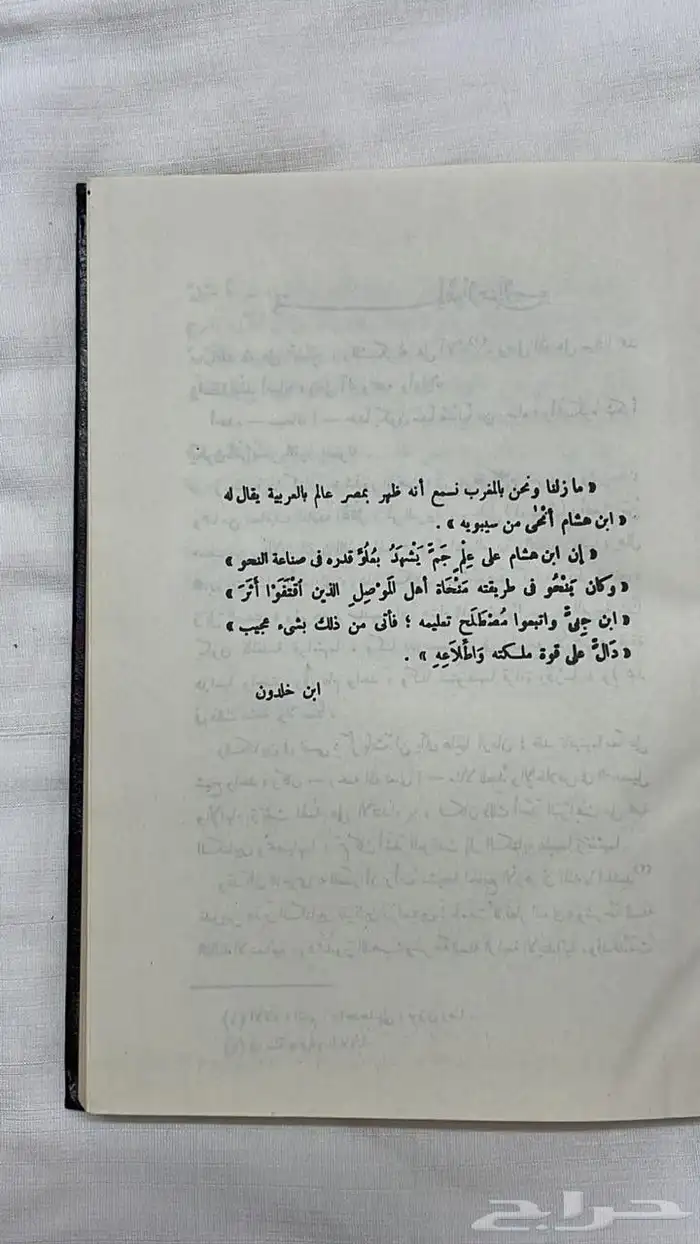 « ما زلنا ونحن بالمغرب نسمع أنه ظهر بمصر عالم بالعربية يقال له
« ابن هشام أَنْحَى من سيبويه » .
« إن ابن هشام على عِلْمٍ جَمٍّ يَشْهَدُ بِعُلُوِّ قدره فى صناعة النحو »
« وكان يَنْحُو فى طريقته مَنْحَاة أهل المَوْصِلِ الذين اقْتَفَوْا أَثَرَ »
« ابن جِنِّيْ واتبعوا مُصْطَلَح تعليمه ؛ فأتى من ذلك بشىء عجيب »
« دَالٍّ على قوة ملكته وَاطِّلَاعِهِ » .
ابن خلدون
حراج